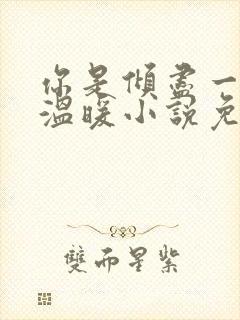 你是傾盡一
溫暖小說免
雙而星紫